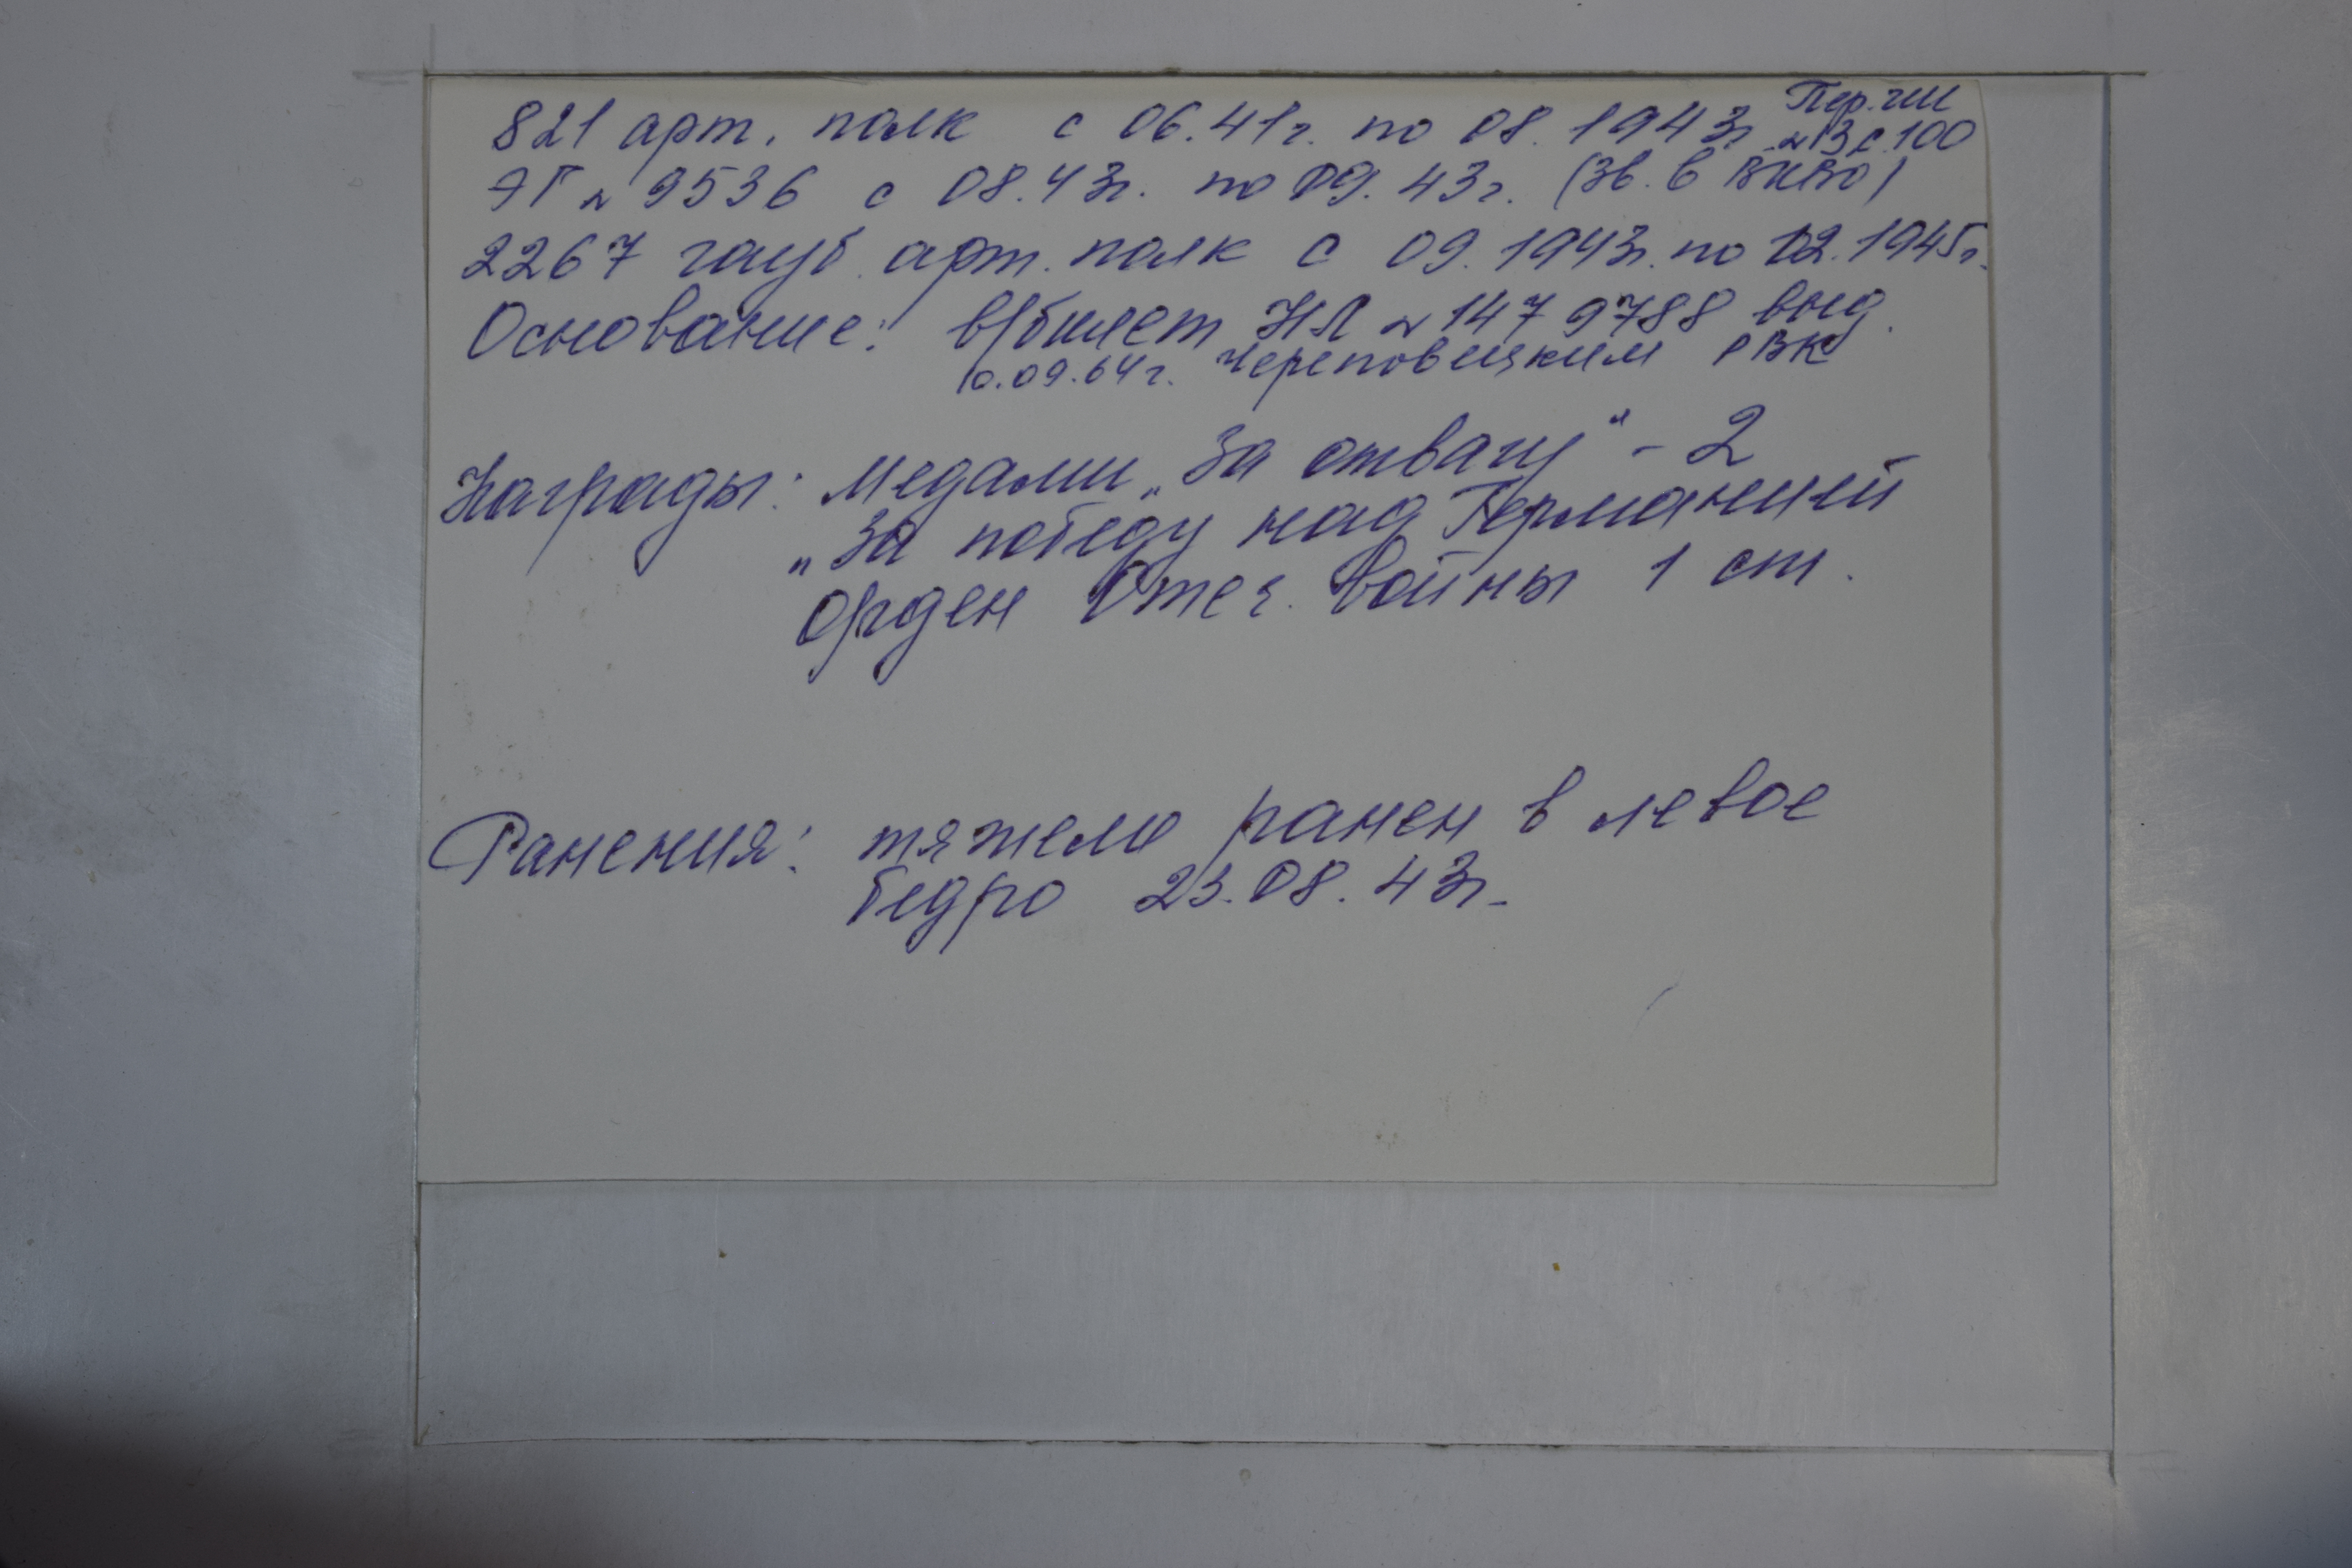 821 арт. полк с 06.41г. по 08.1943г. Пер. ГШ
№ 3 с. 100
ЭГ № 9536 с 08.43г. по 09.43г. (зв. в
2267 гауб. арт. полк с 09.1943г. по 02.1945г.
Основание: в/билет НЛ № 1479788 выд.
10.09.64г. Череповецким РВК
Награды: Медали „За отвагу" - 2
„За победу над Германией
Орден Отеч. войны 1 ст.
Ранения: тяжело ранен в левое
бедро 23.08.43г.